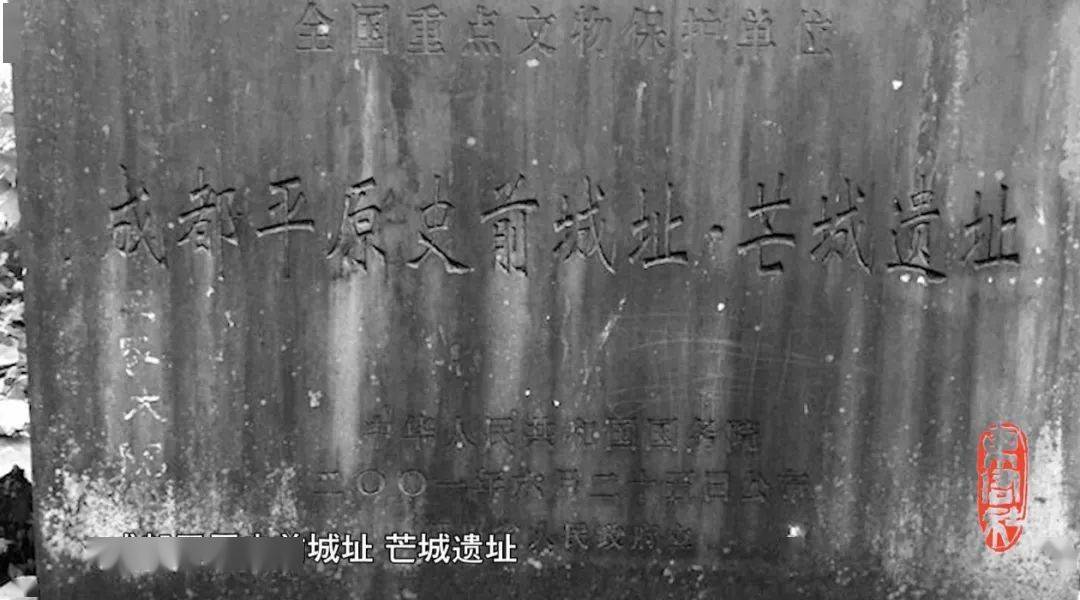 全国重点文物保护单位
成都平原史前城址·芒城遗址
中华人民共和国国务院
二〇〇一年六月二十五日公布
人民政府立
城址 芒城遗址